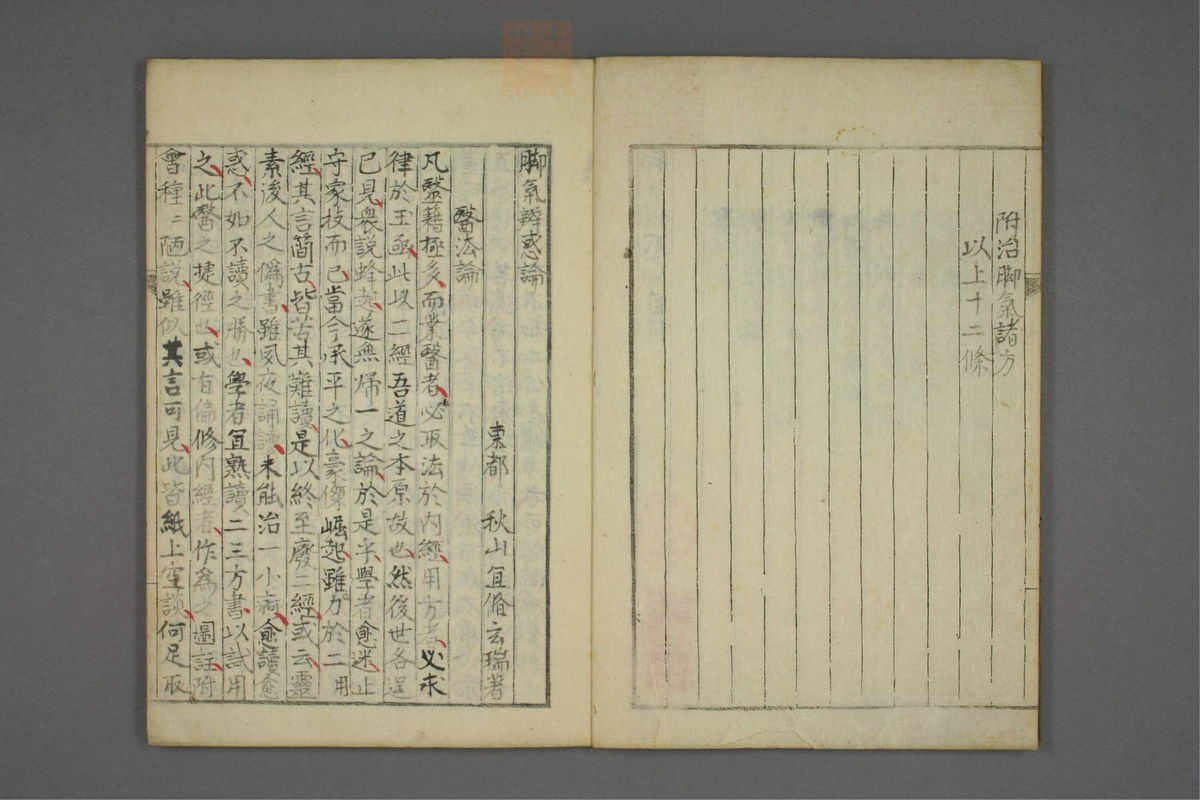 附治脚氣諸方
以上十二條
脚氣辨惑論
東都 秋山宜脩云瑞著
醫法論
凡毉籍極多而業醫者必取法於内經用方者必求
律於玉函此以二經吾道之本原故也然後世各逞
己見衆説蜂起遂無帰一之論於是乎學者愈迷止
守家技而已當今承平之化豪傑崛起雖力於二
經其言簡古皆苦其難讀是以終至廢二經或云靈
素後人之偽書雖夙夜誦讀未能治一小病愈讀愈
惑不如不讀之勝也學者宜熟讀二三方書以試用
之此醫之捷徑也或有偏修内經者作為之圖註附
會種〻陋説雖似其言可見此皆紙上空談何足取